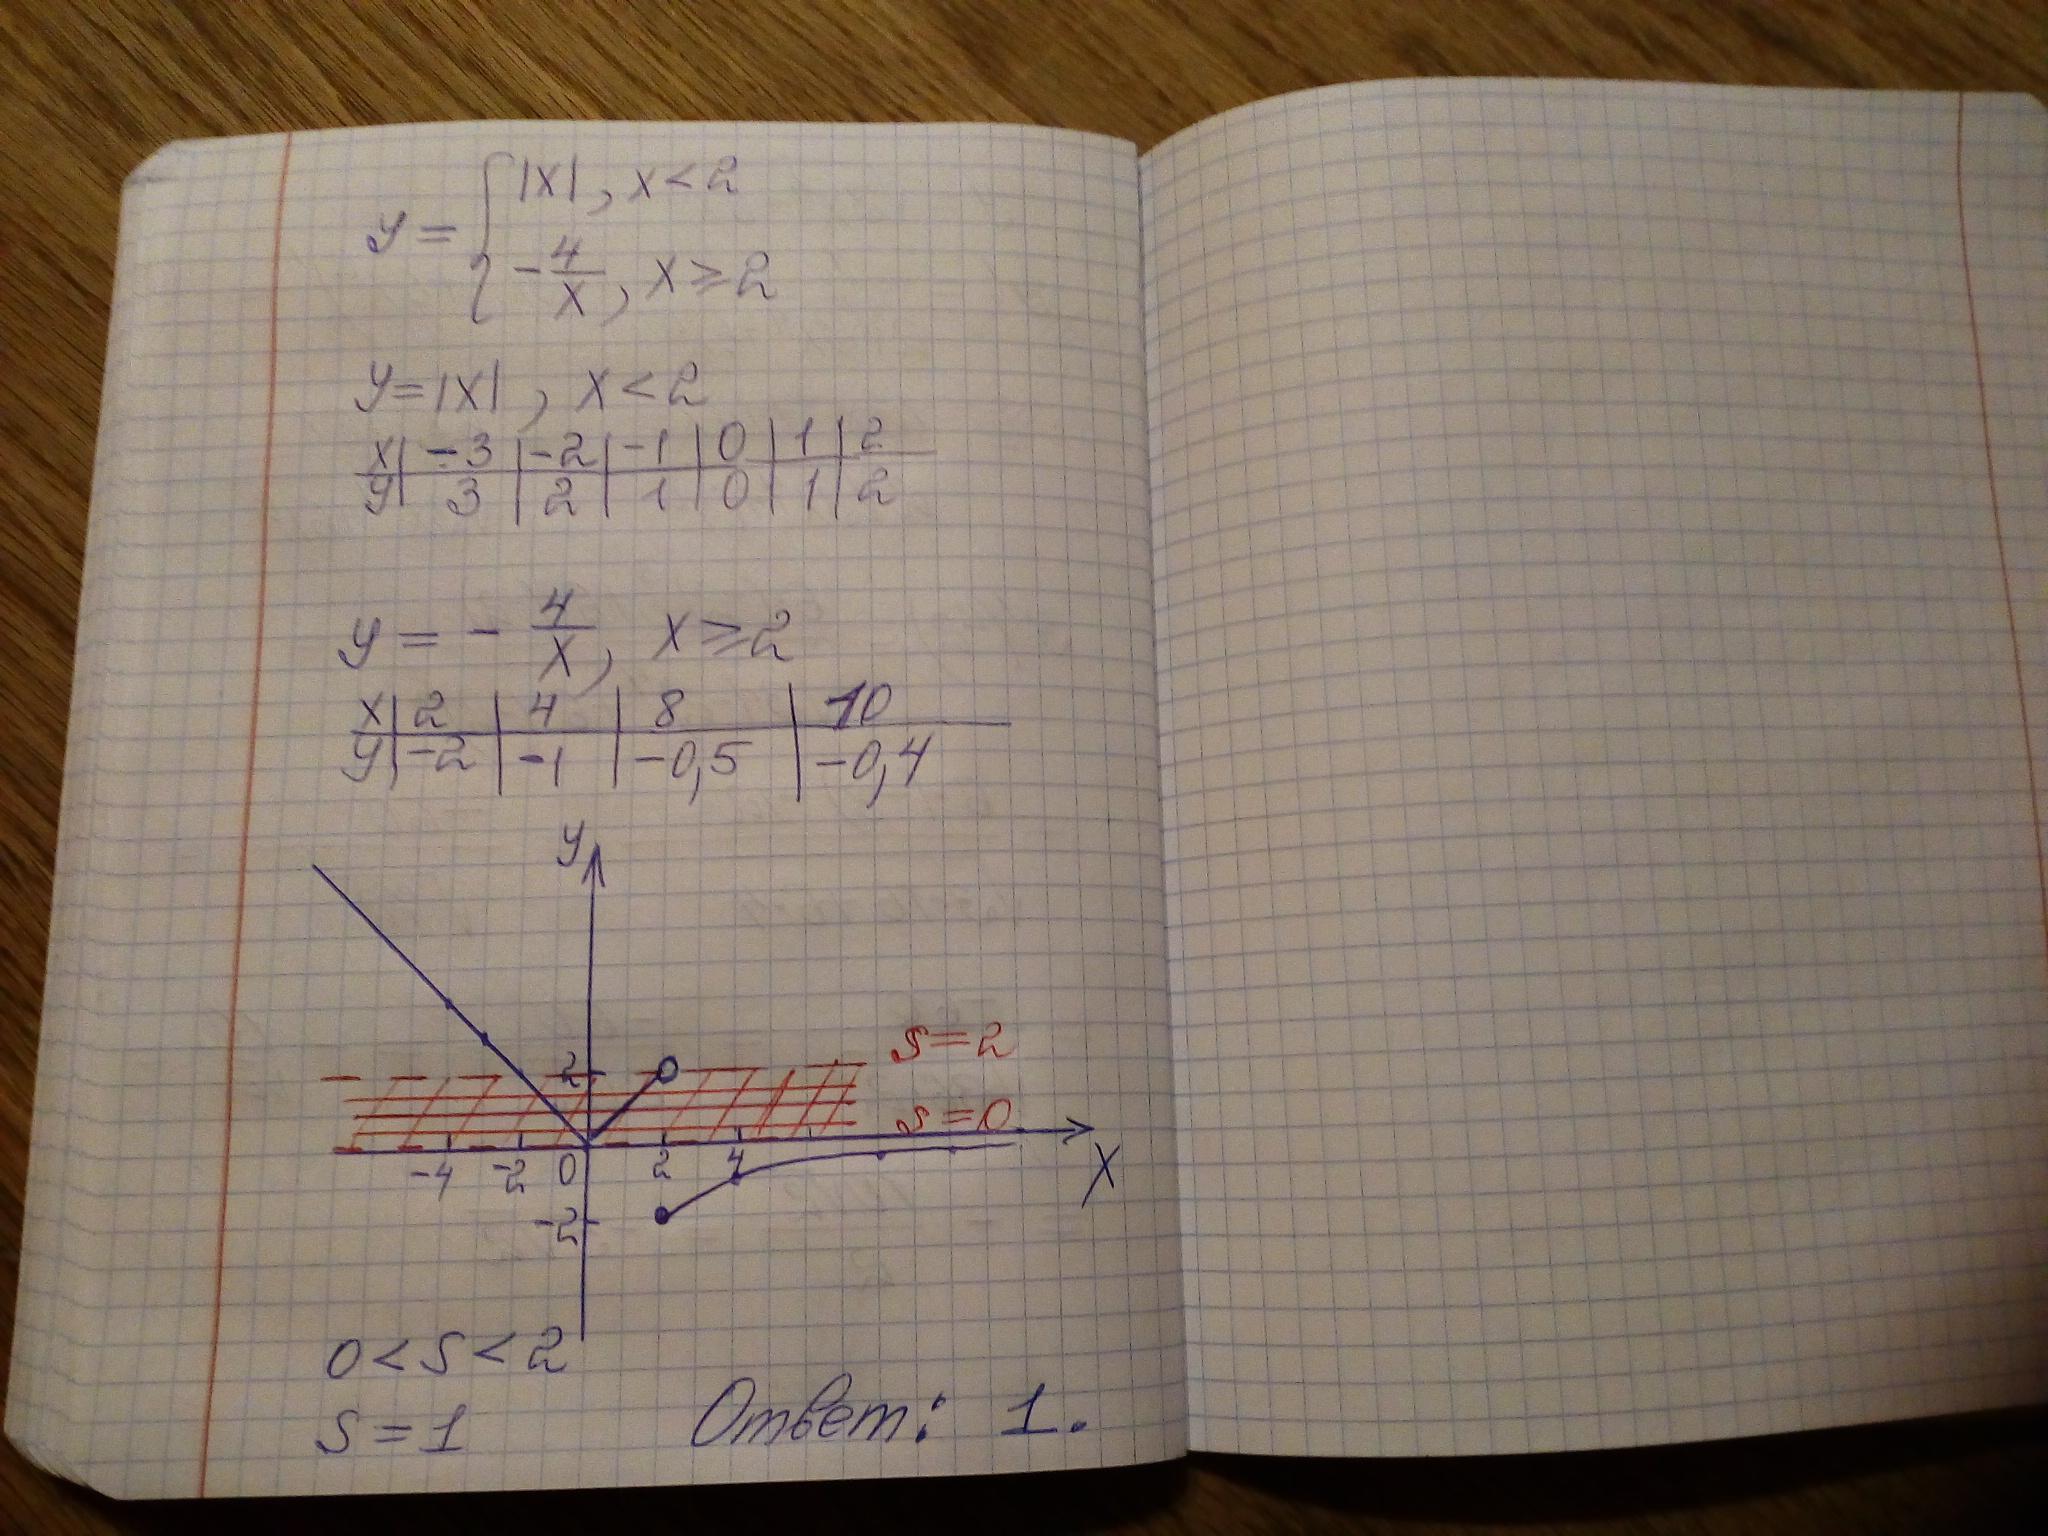 y = { |x| , x < 2
-4/x , x ≥ 2
y = |x| , x < 2
x | -3 | -2 | -1 | 0 | 1 | 2
y | 3 | 2 | 1 | 0 | 1 | 2
y = - 4/x , x ≥ 2
x | 2 | 4 | 8 | 10
y | -2 | -1 | -0,5 | -0,4
y
s=2
2
s=0
-4 -2 0 2 4 x
-2
0 < s < 2
s = 1
Ответ: 1.